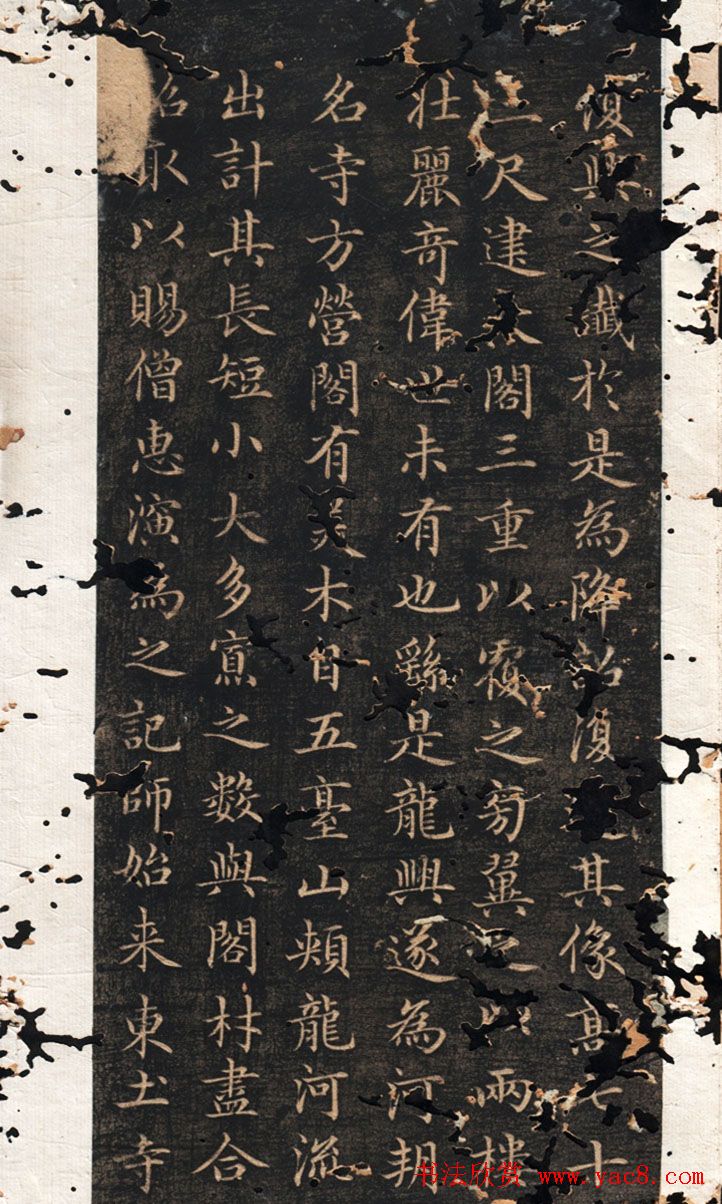 復興之讖於是為降詔復其像高七十
三尺建大閣三重以覆之旁翼之以兩樓
壯麗奇偉世未有也繇是龍興遂為河朔
名寺方營閣有美木自五臺山頰龍河流
出計其長短小大多寡之數與閣材盡合
詔取以賜僧惠演為之記師始来東土寺
书法欣赏 www.yac8.com